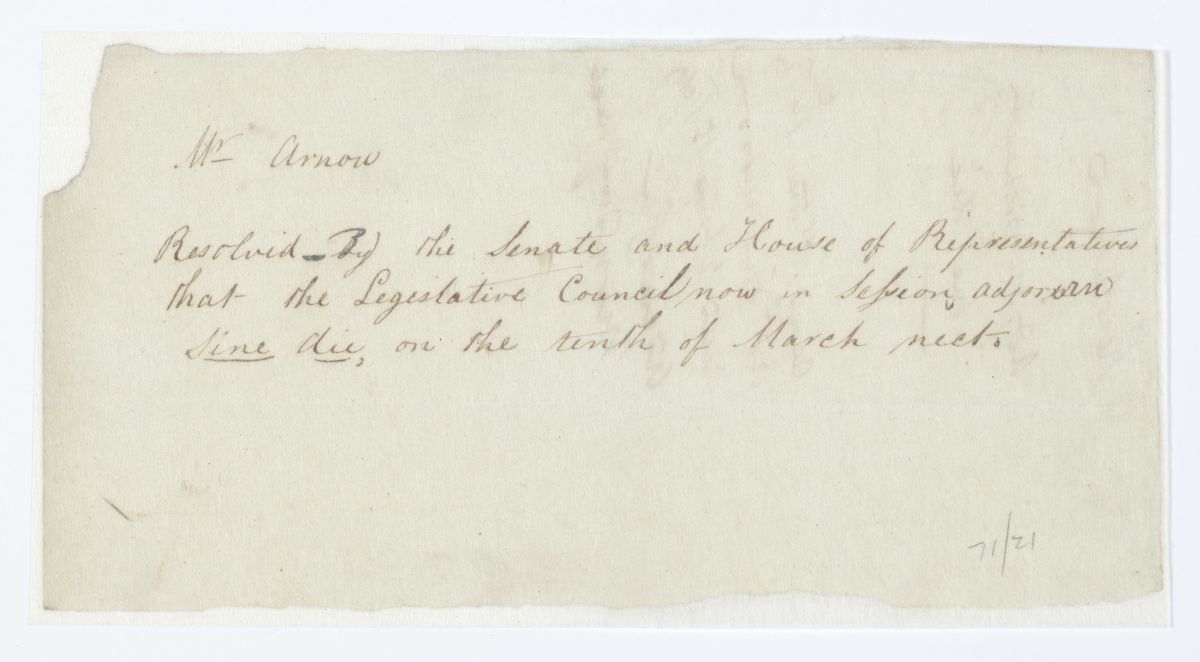 Mr Arnow
Resolvid By the Senate and House of Representatives
that the Legeslative Council now in Session, adjorurn
Sine die, on the tenth of March nect.
71/21